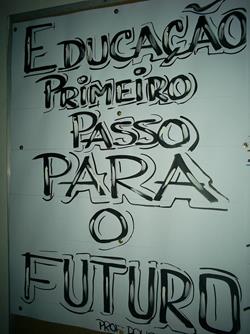 EDUCAÇÃO
PRIMEIRO
PASSO
PARA
O
FUTURO